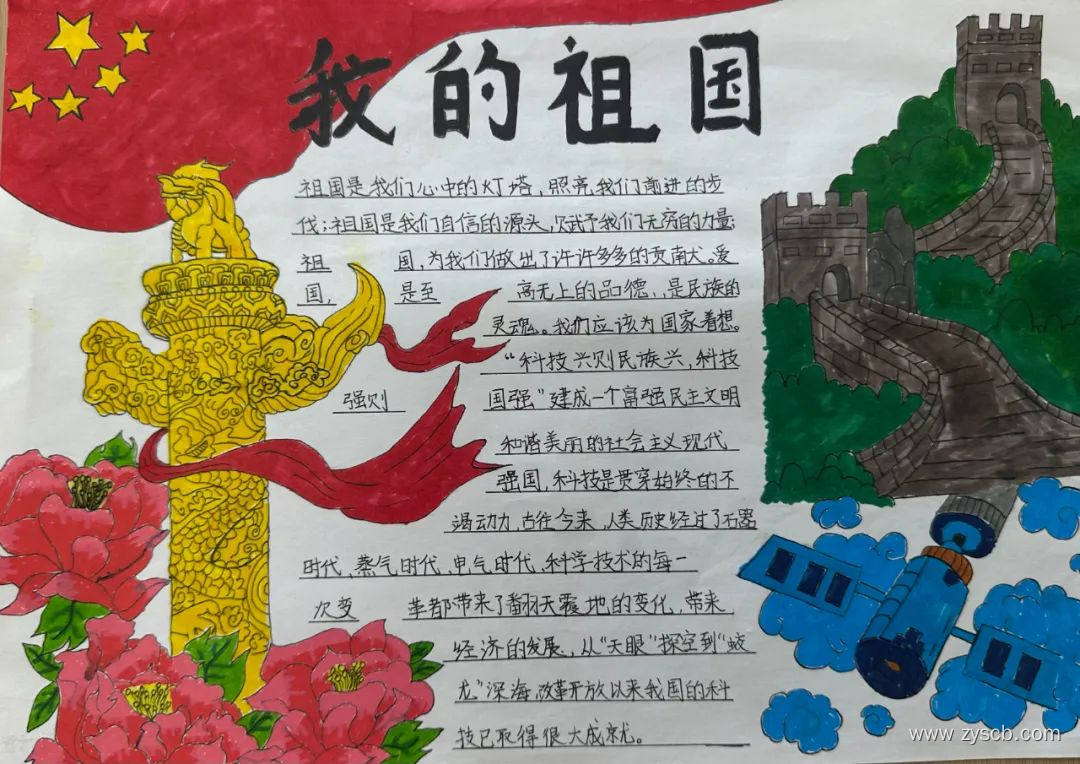 我的祖国
祖国是我们心中的灯塔，照亮我们前进的步
伐；祖国是我们自信的源头，赋予我们无穷的力量；
祖国，为我们做出了许许多多的贡献。爱
国，是至高无上的品德，是民族的
灵魂。我们应该为国家着想。
“科技兴则民族兴，科技
强则国强”建成一个富强民主文明
和谐美丽的社会主义现代
强国，科技是贯穿始终的不
竭动力，古往今来，人类历史经过了石器
时代、蒸气时代、电气时代、科学技术的每一
次变革都带来了翻天震地的变化，带来
经济的发展，从“天眼”探空到“蛟
龙”深海，改革开放以来我国的科
技已取得很大成就。
www.zyscb.com